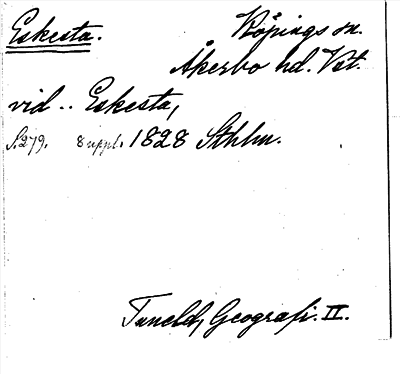 Eskesta. Köpings sn.
Åkerbo hd. Vst.
vid .. Eskesta,
S. 279. 8 uppl. 1828 Sthlm.
Tuneld, Geografi. II.